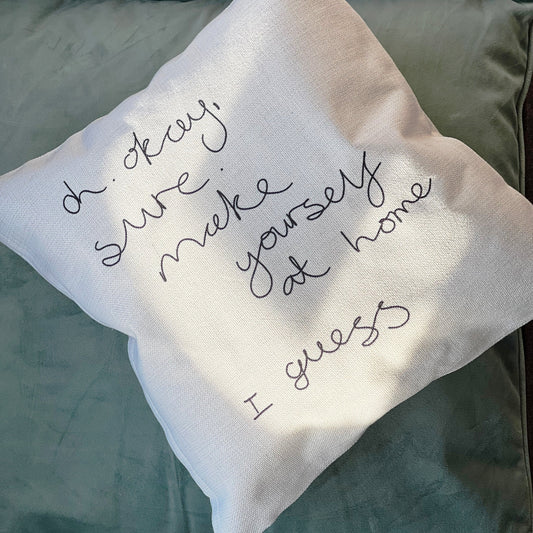 oh. okay,
sure.
make
yourself
at home
I guess